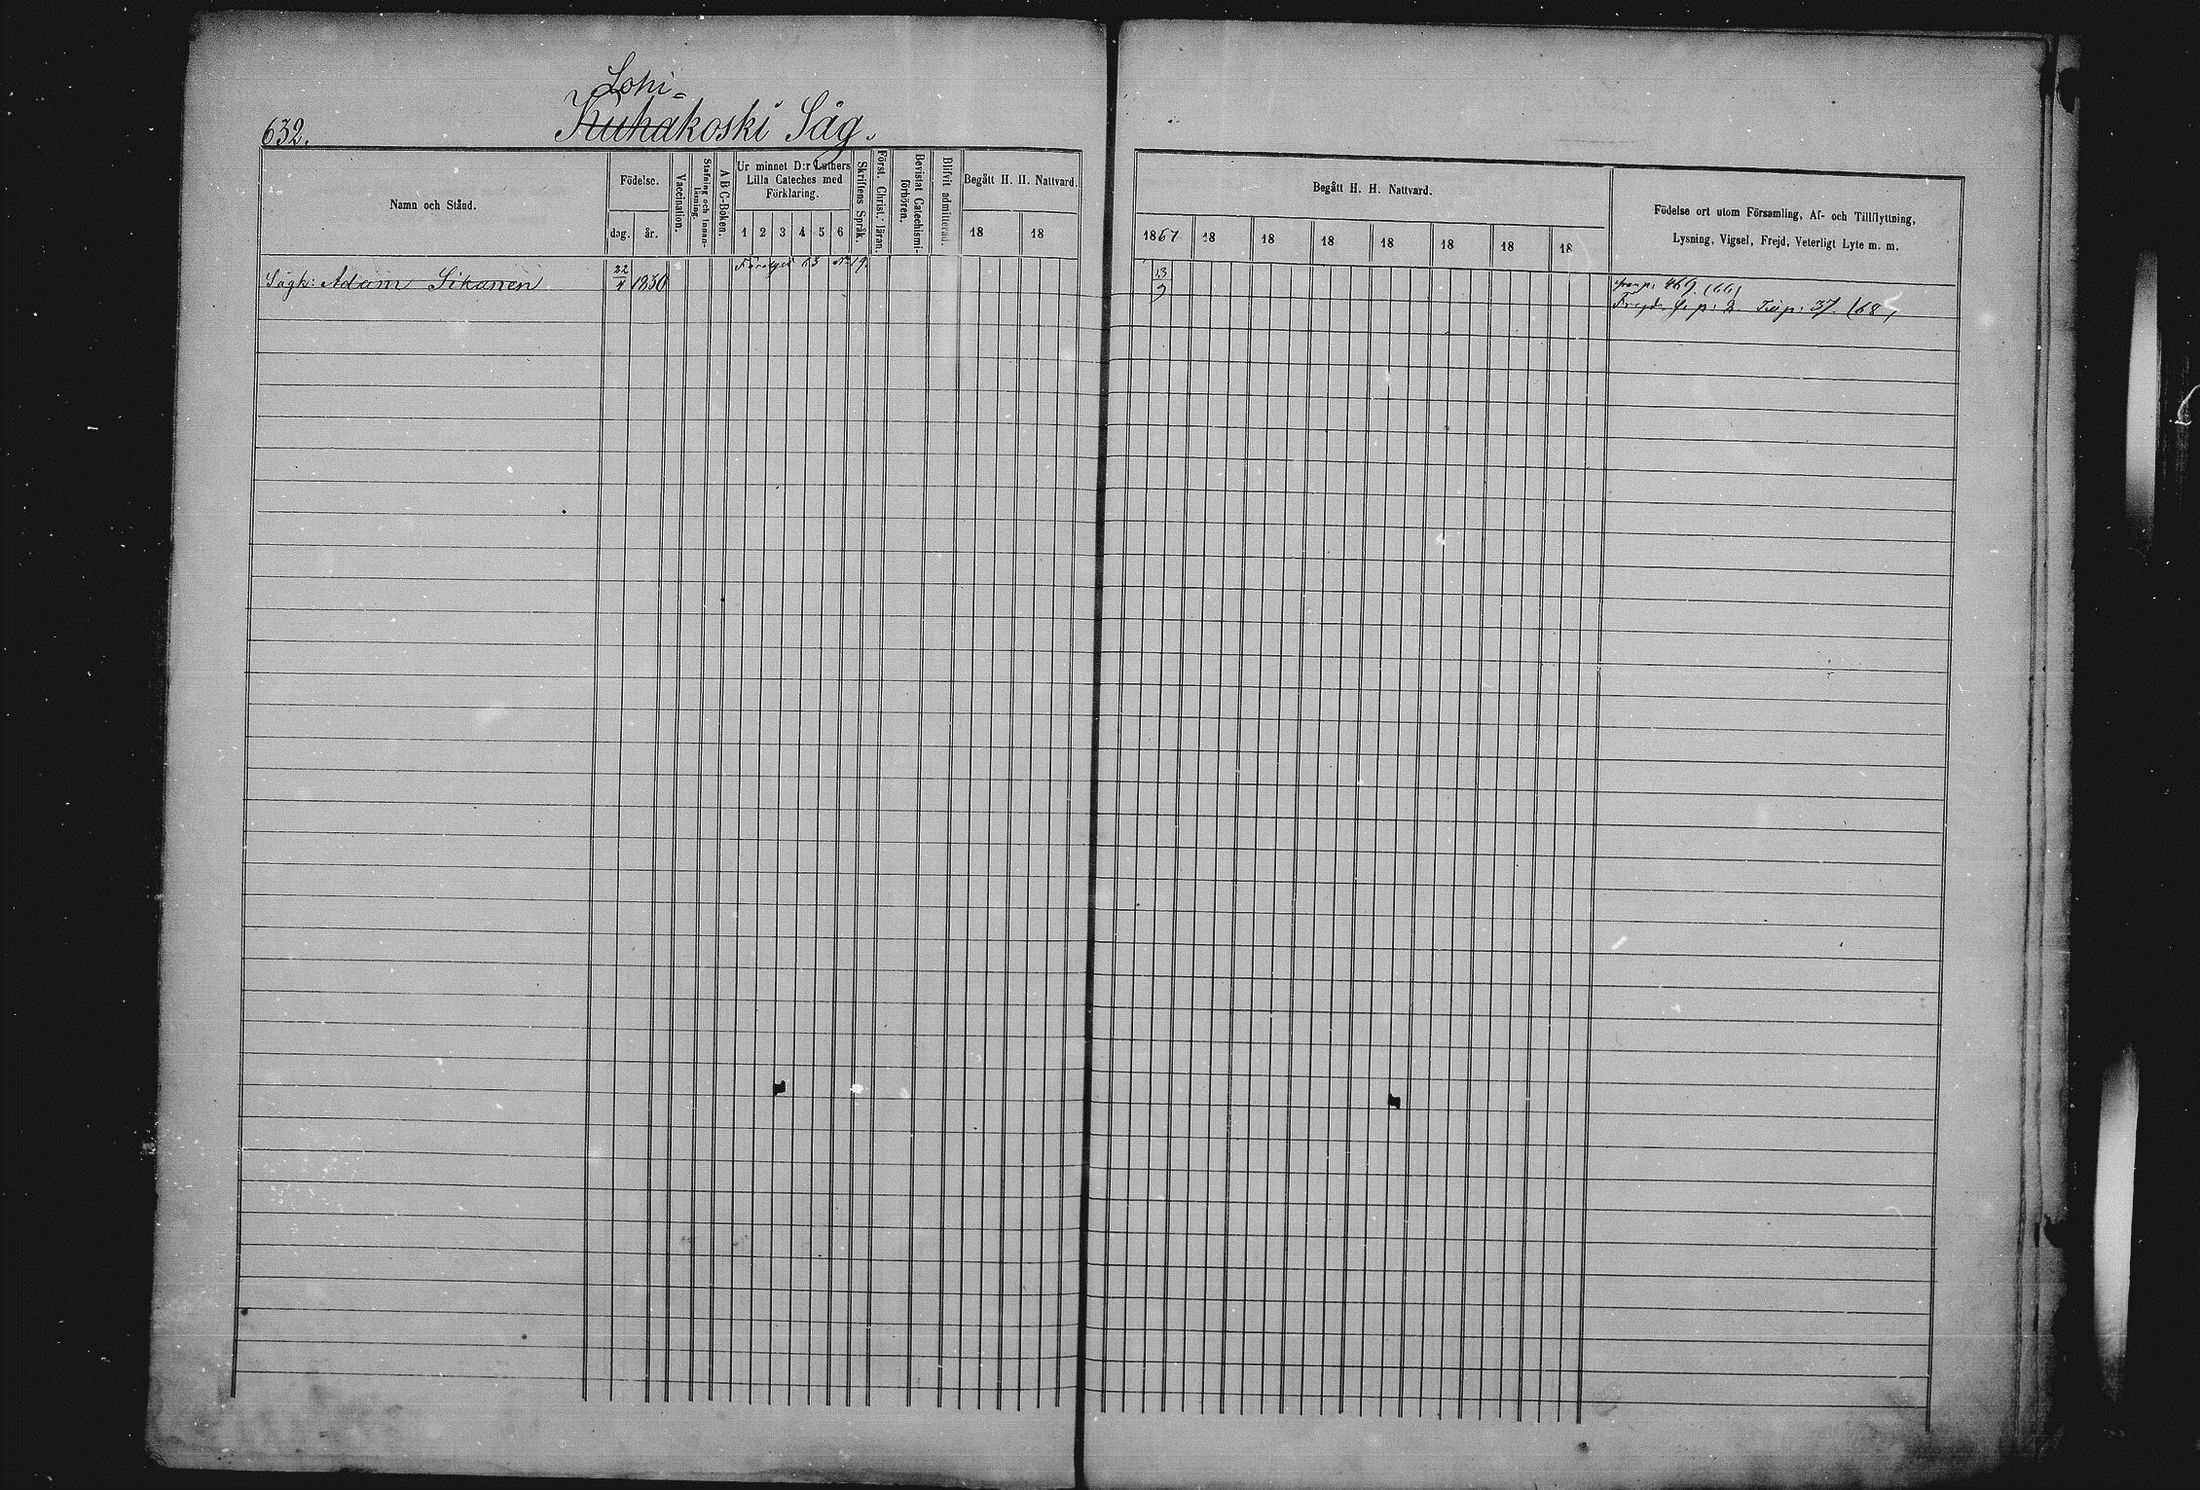 Lohi=
632. Kuhakoski Såg.
Namn och Stånd.
Födelse.
dag. år.
Vaccination.
Stafning och Innan-läsning.
A B C-Boken.
Ur minnet D:r Luthers
Lilla Cateches med
Förklaring.
1 2 3 4 5 6
Skriftens Språk.
Först. Christ. läran.
Bevistat Catechismi-förhören.
Blifvit admitterad.
Begått H. H. Nattvard.
18 18
Sågk: Adam Sikanen 22/4 1830 63 No 19.
Begått H. H. Nattvard.
1867 18 18 18 18 18 18 18
Födelse ort utom Församling, Af- och Tillflyttning,
Lysning, Vigsel, Frejd, Veterligt Lyte m. m.
13/9
från p: 469. (66)
Frejd p: 2. p: 37. (68)